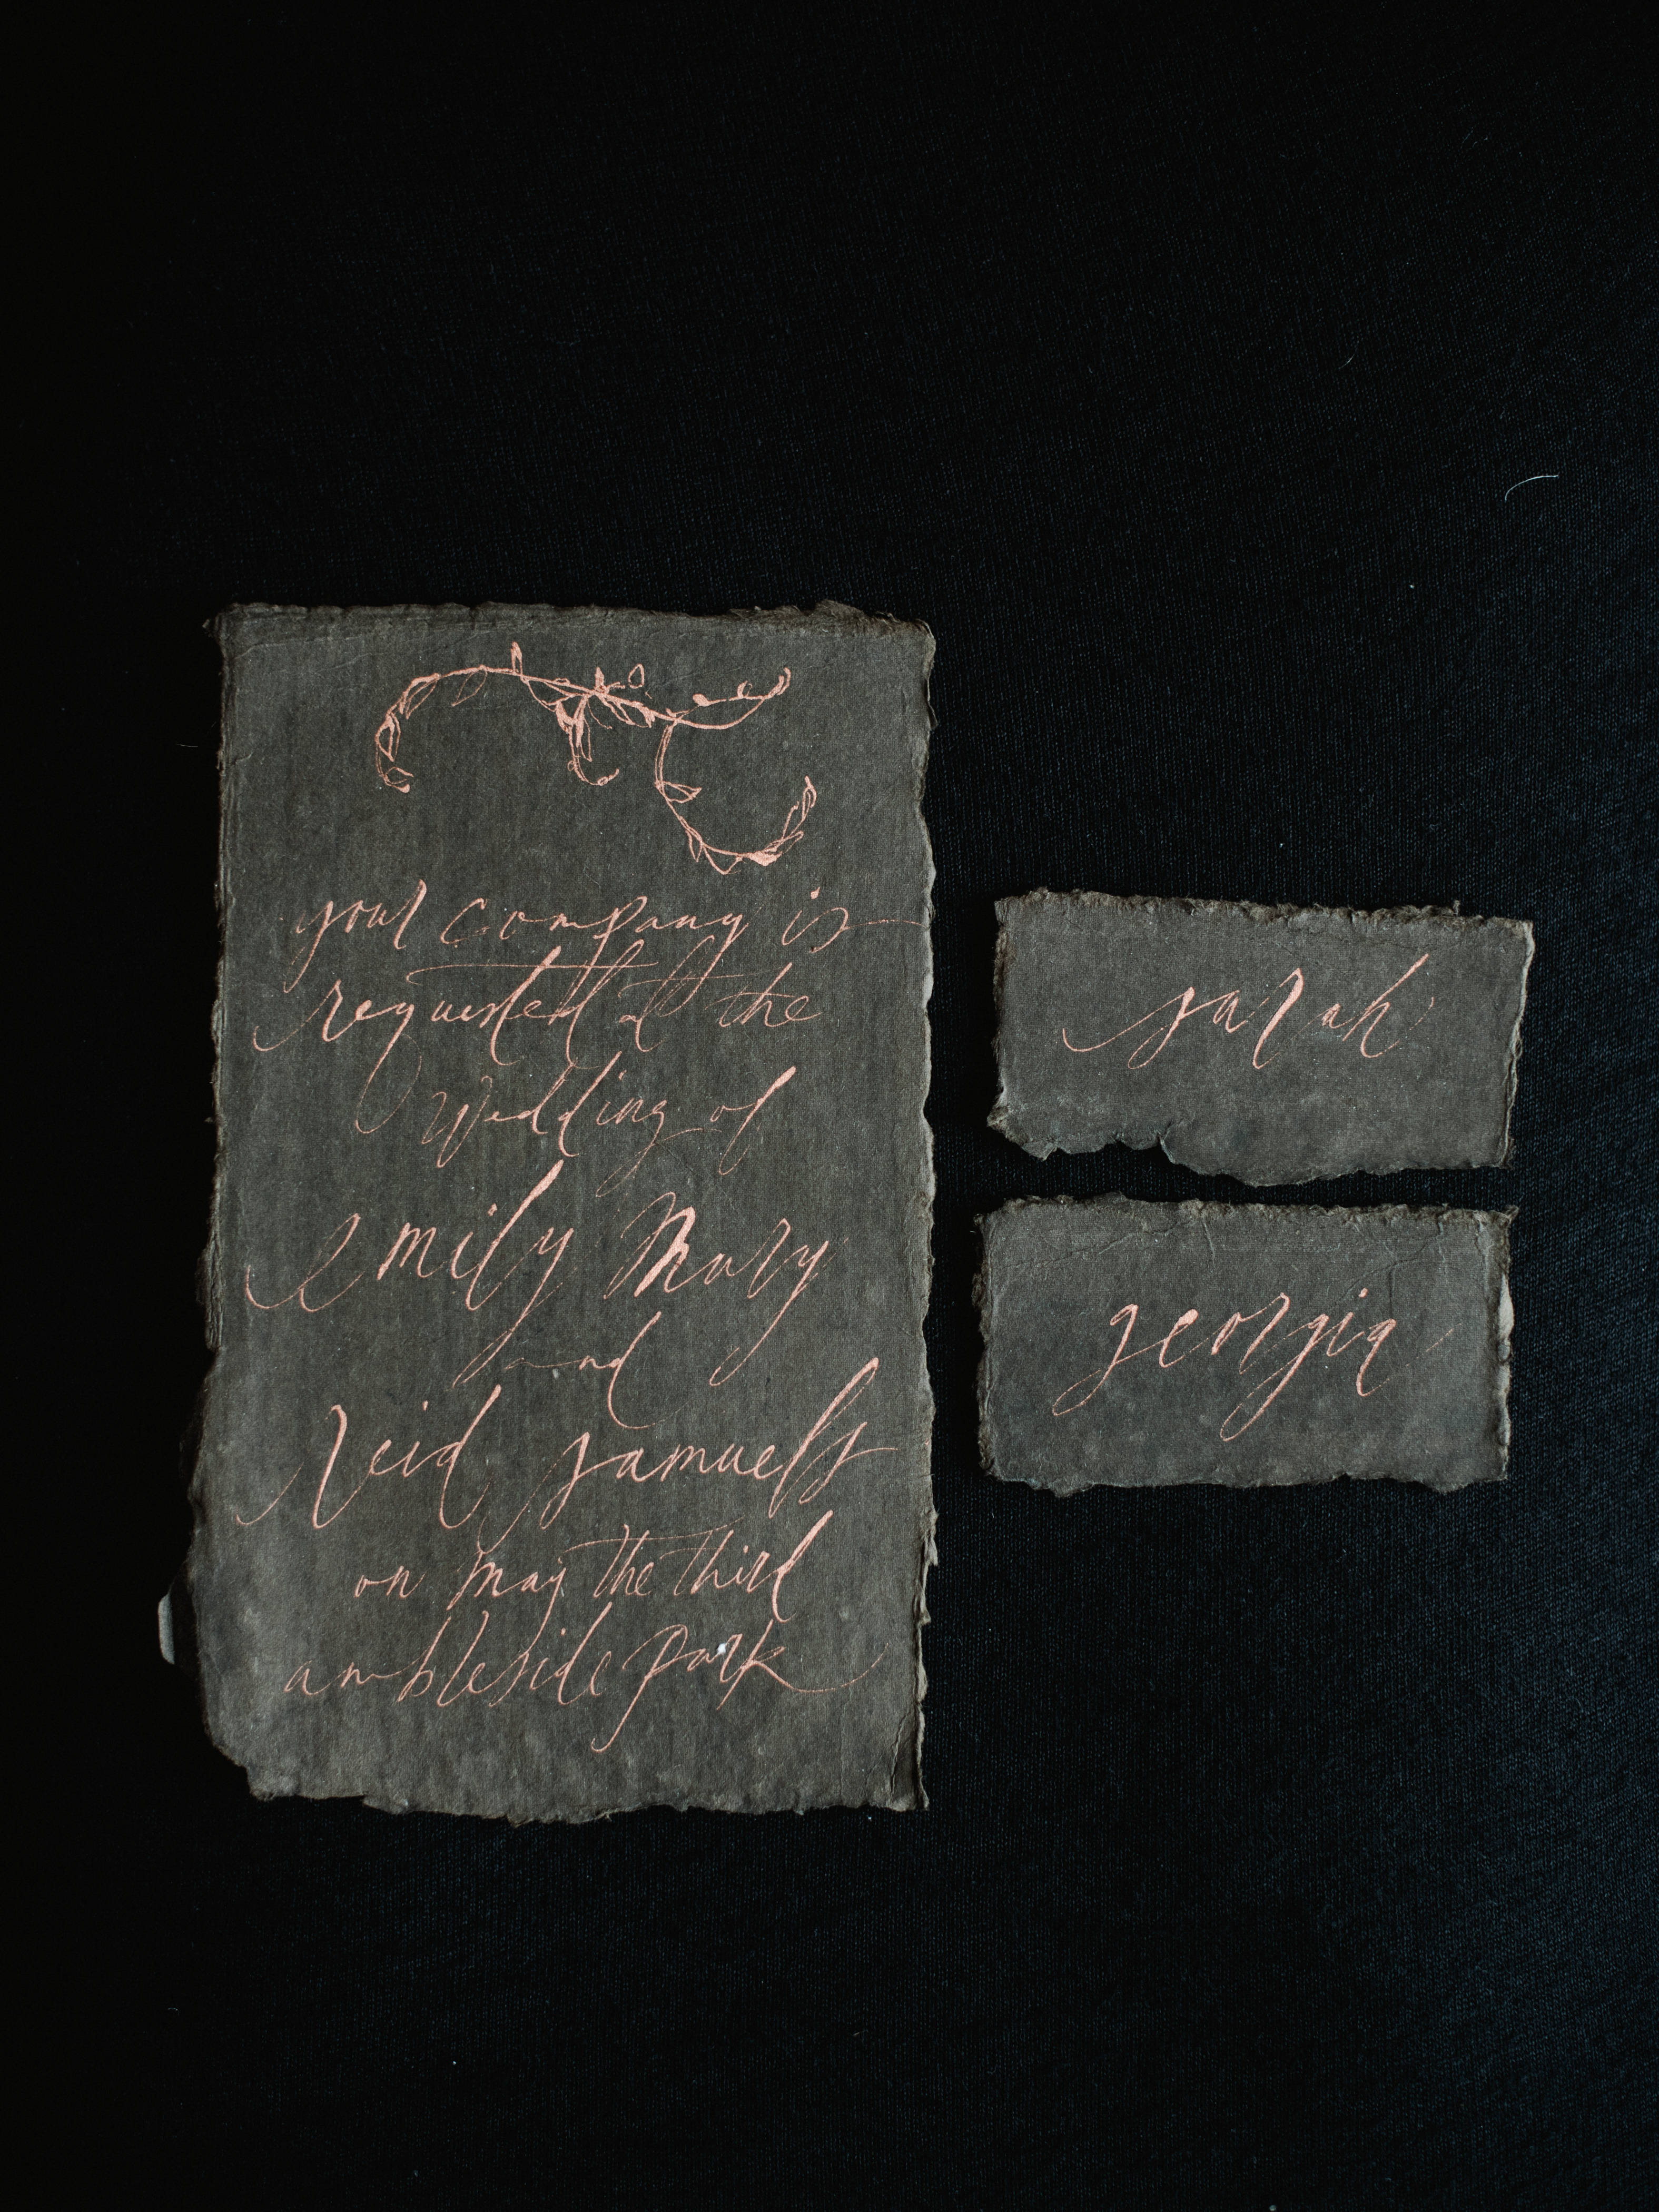 your company is
requested at the
wedding of
emily mary
and
reid samuels
on may the third
ambleside park
sarah
georgia